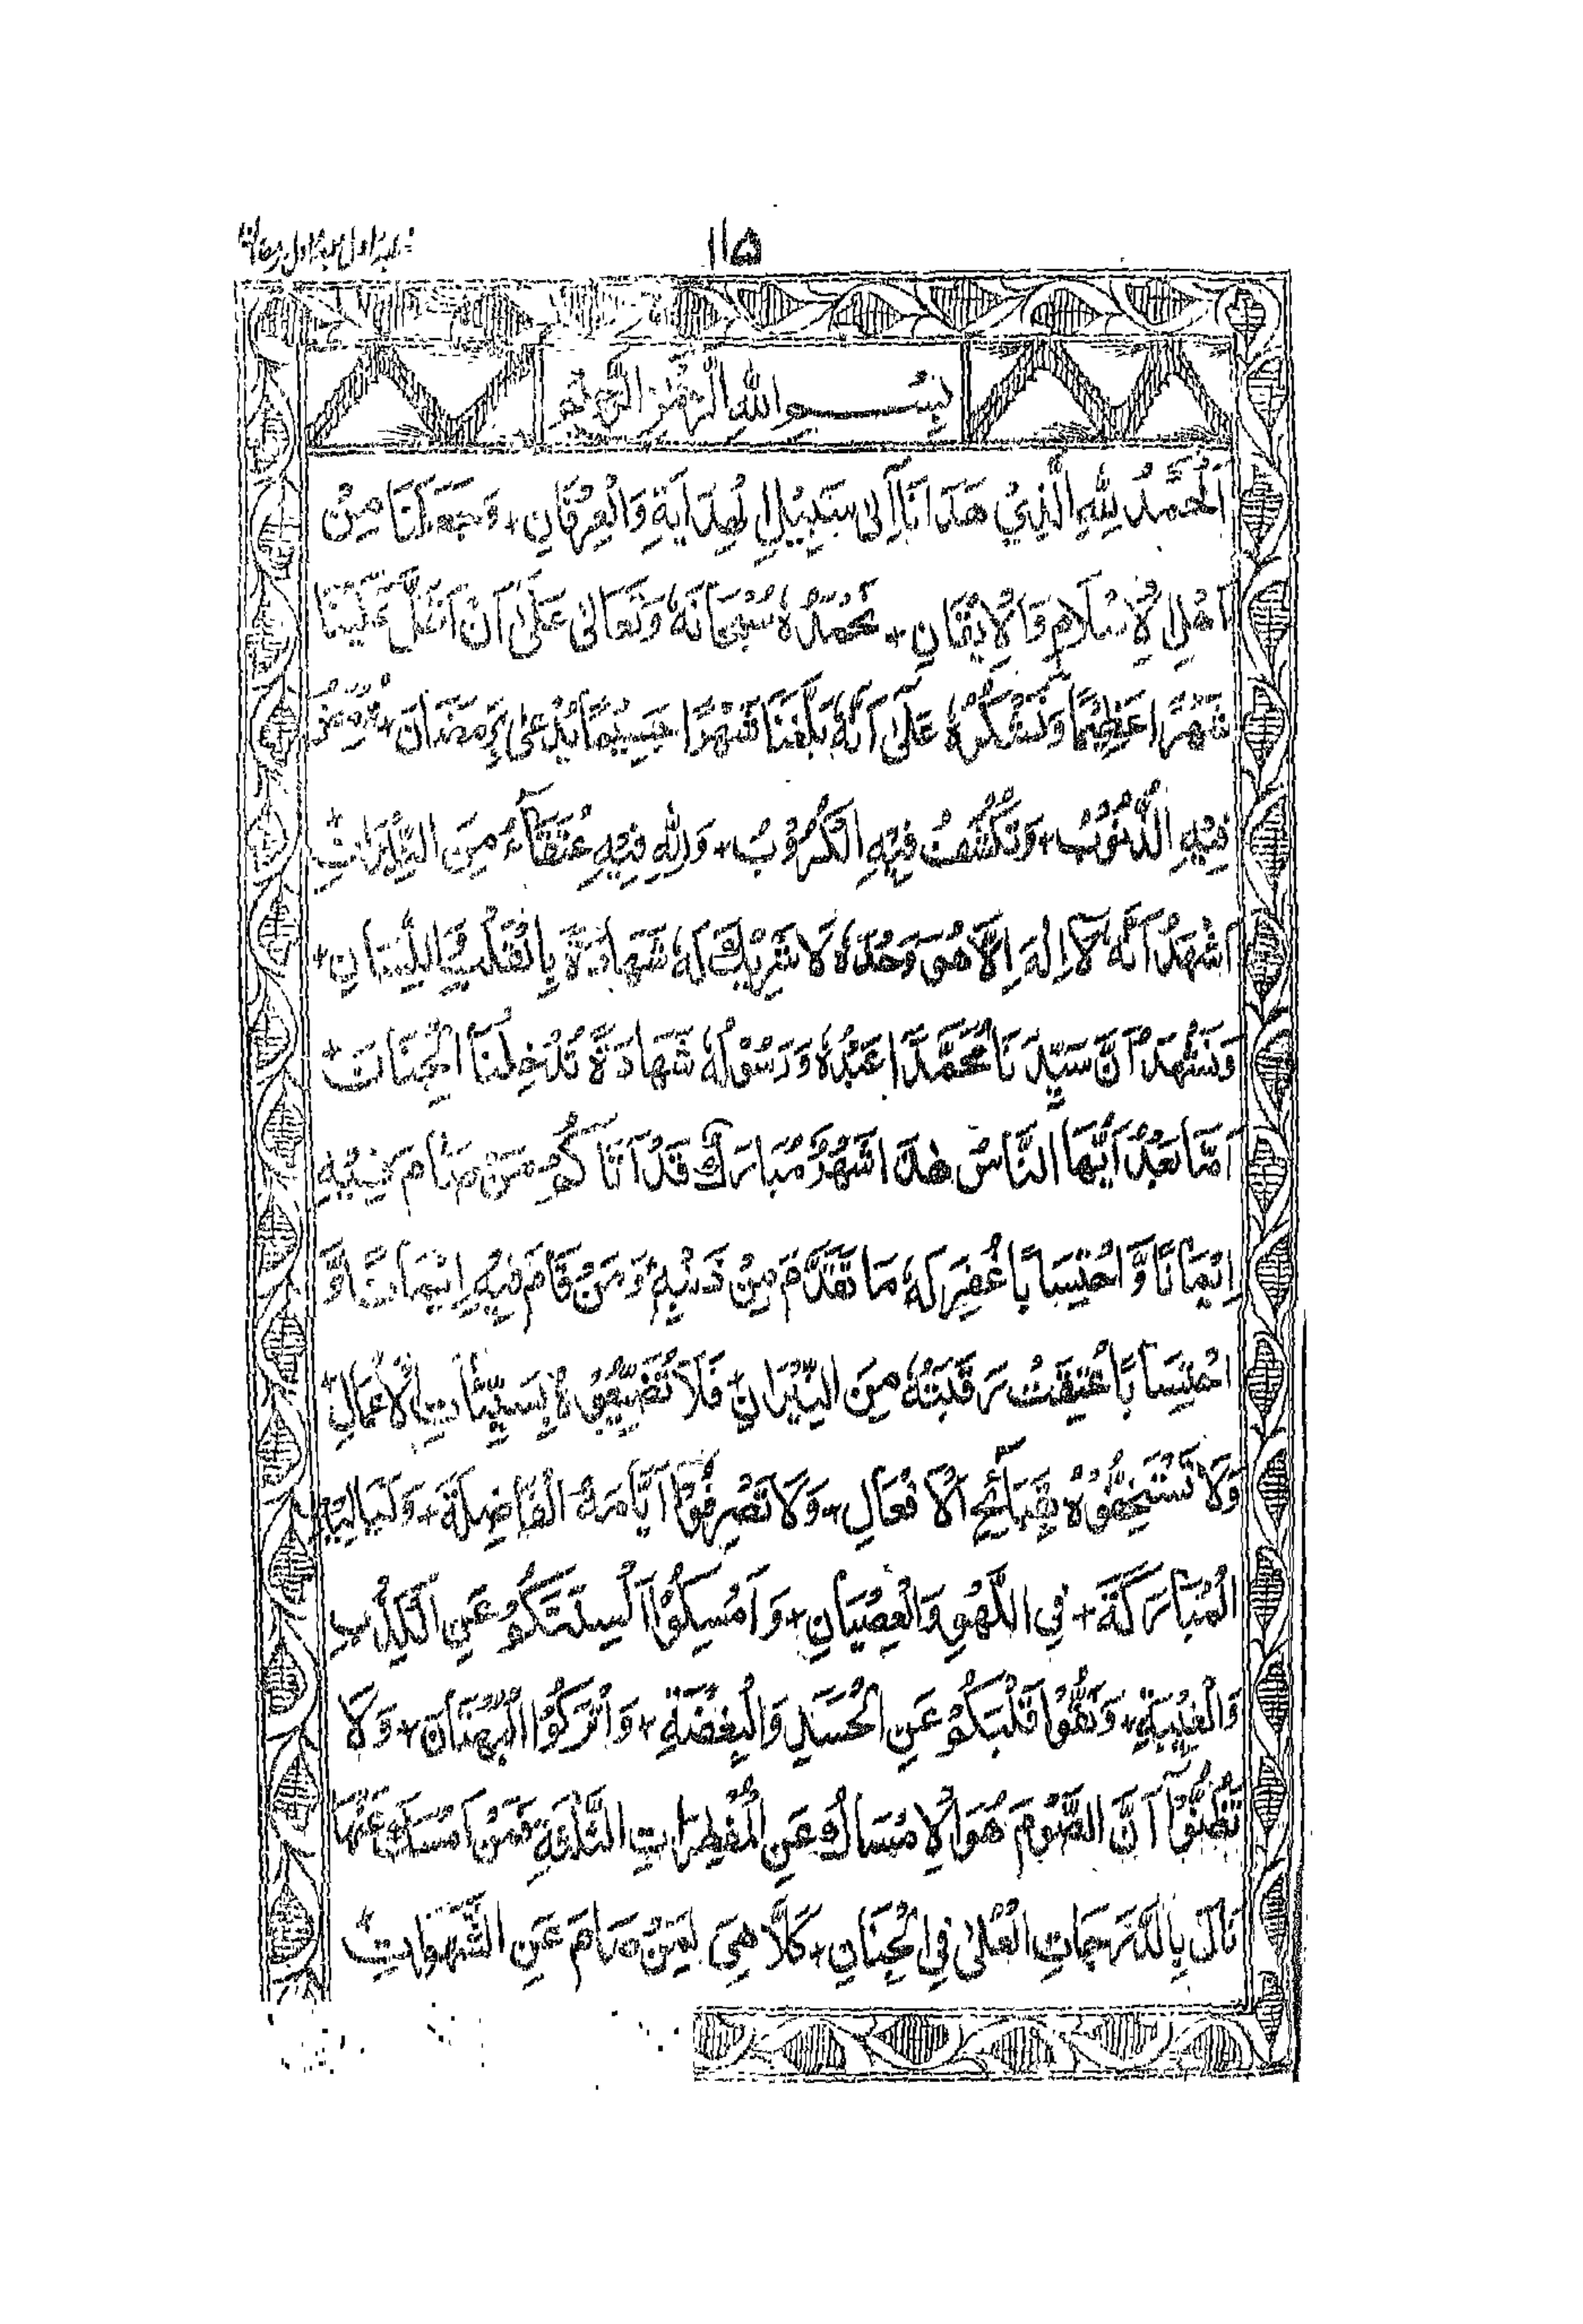 ۱۱۵
بِسْمِ اللهِ الرَّحْمٰنِ الرَّحِيْمِ
اَلْحَمْدُ لِلّٰهِ الَّذِيْ هَدَانَا اِلٰى سَبِيْلِ الْهِدَايَةِ وَالْعِرْفَانِ + وَجَعَلَنَا مِنْ
اَهْلِ الْاِسْلَامِ وَالْاِيْقَانِ + نَحْمَدُهٗ سُبْحَانَهٗ وَتَعَالٰى عَلٰى اَنْ اَظَلَّ عَلَيْنَا
شَهْرًا عَظِيْمًا وَنَشْكُرُهٗ عَلٰى اَنَّهٗ بَلَّغَنَا شَهْرًا جَسِيْمًا يُدْعٰى بِرَمَضَانَ +
فِيْهِ الذُّنُوْبُ + وَتُكْشَفُ فِيْهِ الْكُرُوْبُ + وَلِلّٰهِ فِيْهِ عُتَقَآءُ مِنَ النِّيْرَانِ
اَشْهَدُ اَنَّهٗ لَآ اِلٰهَ اِلَّا هُوَ وَحْدَهٗ لَا شَرِيْكَ لَهٗ شَهَادَةً بِالْقَلْبِ وَاللِّسَانِ +
وَنَشْهَدُ اَنَّ سَيِّدَنَا مُحَمَّدًا عَبْدُهٗ وَرَسُوْلُهٗ شَهَادَةً تُدْخِلُنَا الْجِنَانَ +
اَمَّا بَعْدُ اَيُّهَا النَّاسُ هٰذَا شَهْرٌ مُبَارَكٌ قَدْ اَتَاكُمْ مَنْ صَامَ فِيْهِ
اِيْمَانًا وَّاحْتِسَابًا غُفِرَ لَهٗ مَا تَقَدَّمَ مِنْ ذَنْبِهٖ وَمَنْ قَامَ فِيْهِ اِيْمَانًا وَّ
احْتِسَابًا عُتِقَتْ رَقَبَتُهٗ مِنَ النِّيْرَانِ + فَلَا تُضَيِّعُوْهُ بِسَيِّئَاتِ الْاَعْمَالِ +
وَلَا تَسْتَخِفُّوْهُ بِقَبَآئِحِ الْاَفْعَالِ + وَلَا تَصْرِفُوْا اَيَّامَهُ الْفَاضِلَةَ + وَلَيَالِيَهُ
الْمُبَارَكَةَ + فِي اللَّهْوِ وَالْعِصْيَانِ + وَاَمْسِكُوْا اَلْسِنَتَكُمْ عَنِ الْكِذْبِ
وَالْغِيْبَةِ + وَنَقُّوْا قَلْبَكُمْ عَنِ الْحَسَدِ وَالْبِغْضَةِ + وَاتْرُكُوا الْبُهْتَانَ + وَلَا
تَظُنُّوْا اَنَّ الصَّوْمَ هُوَ الْاِمْسَاكُ عَنِ الْمُفْطِرَاتِ الثَّلٰثَةِ فَمَنْ اَمْسَكَ عَنْهَا
نَالَ بِالدَّرَجَاتِ الْعُلٰى فِي الْجِنَانِ + كَلَّا هِيَ لِمَنْ صَامَ عَنِ الشَّهَوَاتِ +